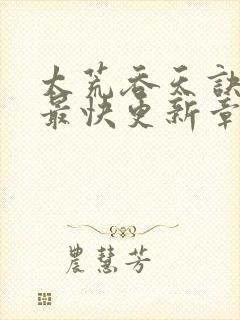 大荒吞天訣
最快更新章
農慧芳